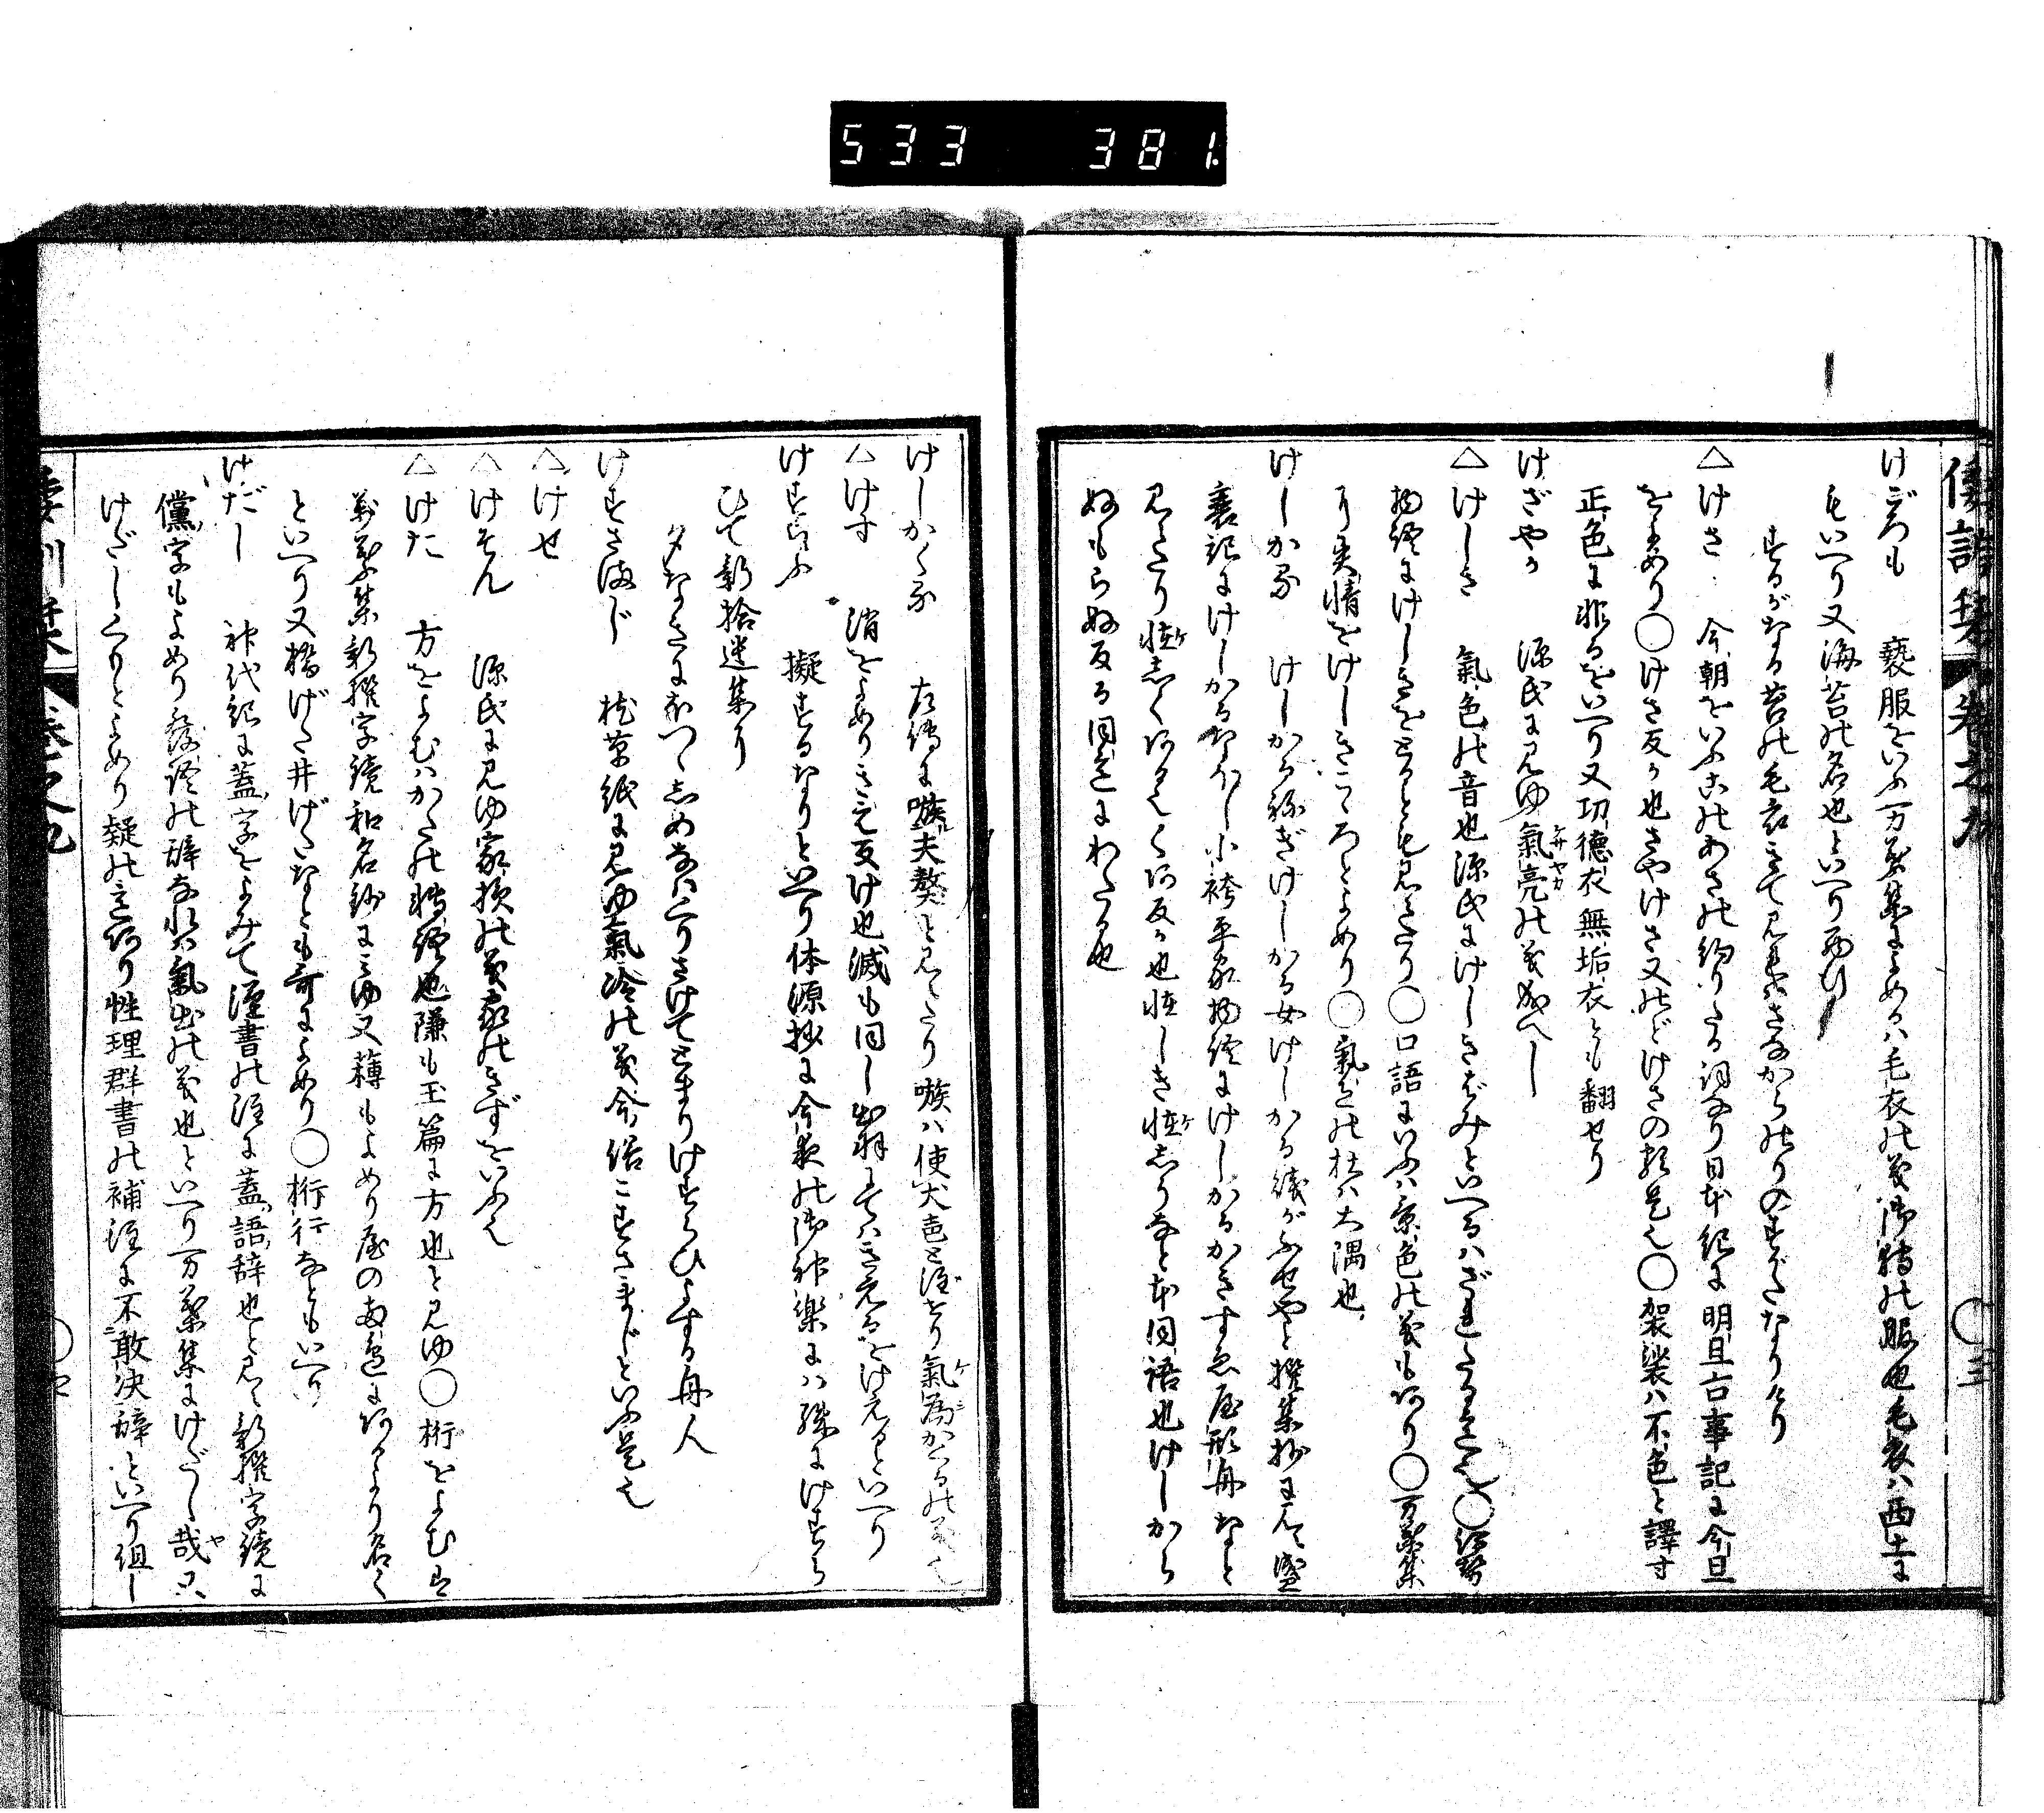 533 381
倭訓栞 卷之九 ○三
けごろも 褻服をいふ万葉集によめるハ毛衣の義御狩の服也毛衣ハ西土に
もいへり又海苔の名也といへり
するがなる苔の毛衣きて見れハさながらのりのすがたなりけり
△けさ 今朝をいふこのあさの約りたる詞なり日本紀に明旦古事記に今旦
をよめり○けさ反か也さやけさ又のどけさの類是也○袈裟ハ不色と譯す
正色に非るをいへり又功德衣無垢衣とも翻せり
けざやか 源氏に見ゆ氣亮の義成へし
△けしき 氣色の音也源氏にけしきばみといへるハざれたる意也○
物語にけしきをとるとも見えたり○口語にいふハ景色の義もあり○万葉集
に異情をけしきこゝろとよめり○氣色の杜ハ大隅也
けしかる けしからねぎけしかる女けしかる織がふせやと撰集抄に見え盛
衰記にけしかるなほし小袴平家物語にけしかるかきすゑ屋形舟なと
見えたり怪しくあるべくあ反か也怪しき怪しうなと本同語也けしから
ぬもらぬ反る同意にわたる也
けしかくる 左傳に嗾夫獒と見えたり嗾ハ使犬也と注せり氣為かくるの義也
△けす 消をよめりきえ反け也滅も同し出羽にてハきえるをけえるといへり
けすらふ 擬するなりといへり体源抄に今夜の御神楽にハ殊にけすら
ひて新拾遺集に
夕なきにおつゝしめなハくりさけてとまりけすらひよする舟人
けすさまじ 枕草紙に見ゆ氣冷の義今俗こすさまじといふ是也
△けせ
△けそん 源氏に見ゆ家損の義家のきずをいふ也
△けた 方をよむハかたの轉語也隒も玉篇に方也と見ゆ○桁をよむは
新葉集新撰字鏡和名鈔に見ゆ又欂もよめり屋の兩邉にあるより名く
といへり又橋げた井げたなとも哥によめり○桁行なともいへり
けだし 神代紀に蓋字をよみて漢書の注に蓋語辞也と見え新撰字鏡に
儻字もよめり發語の辞なれハ氣出の義也といへり万葉集にけだしく哉又ハ
けだしくもとよめり疑の意あり性理群書の補注に不敢决辞といへり但し
倭訓栞 卷之九 ○四